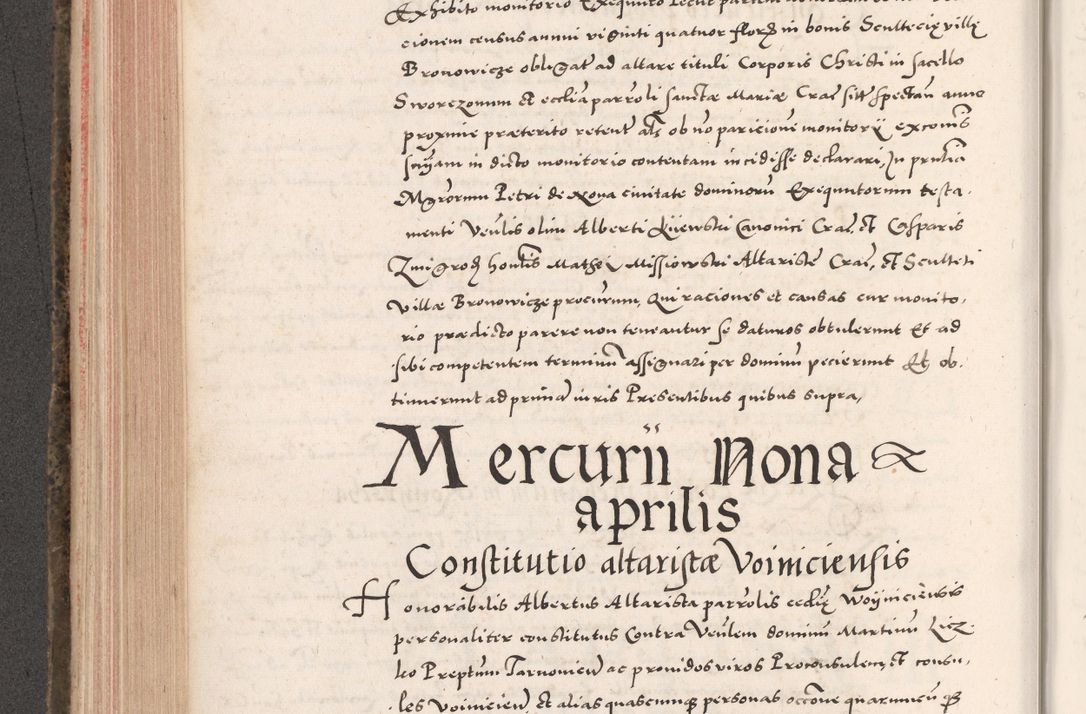 Exhibito monitorio Exequuto
cionem census annui viginti quatuor florẽ in bonis Scultecię villę
Bronowicze obligat ad altare tituli Corporis Christi in sacello
Sworezonum et ecclia parroli sanctæ Mariæ Crac sitt spectan anno
proxime præterito retent als ob no paricione monitorÿ excomis
snÿam in dicto monitorio contentam incidisse declarari, In pntia
Mgrorum Petri de Nova civitate dominoru Exequutorum testa,
menti Venlis olim Alberti Kijewski Canonici Crac, et Gasparis
Zmigrod, hontis Mathei Missiowski Altaristę Crac, et Sculteti
villæ Bronowicze procurum, Qui raciones et causas cur monito,
rio prædicto parere non teneantur se daturos obtulerunt Et ad
sibi competentem terminũ assignari per dominũ pecierunt Et ob,
tinuerunt ad primã iuris Presentibus quibus supra,
Mercurii Nona
aprilis
Constitutio altaristæ Voiniciensis
Honorabilis Albertus Altarista parrolis ecclię Woÿniciensis
personaliter constitutus Contra Venlem dominum Martinũ Licz,
ko Preptum Tarnovien ac providos viros Proconsulem, et consu,
les Voinicien, et alias quascunq personas occõne quarumcũ